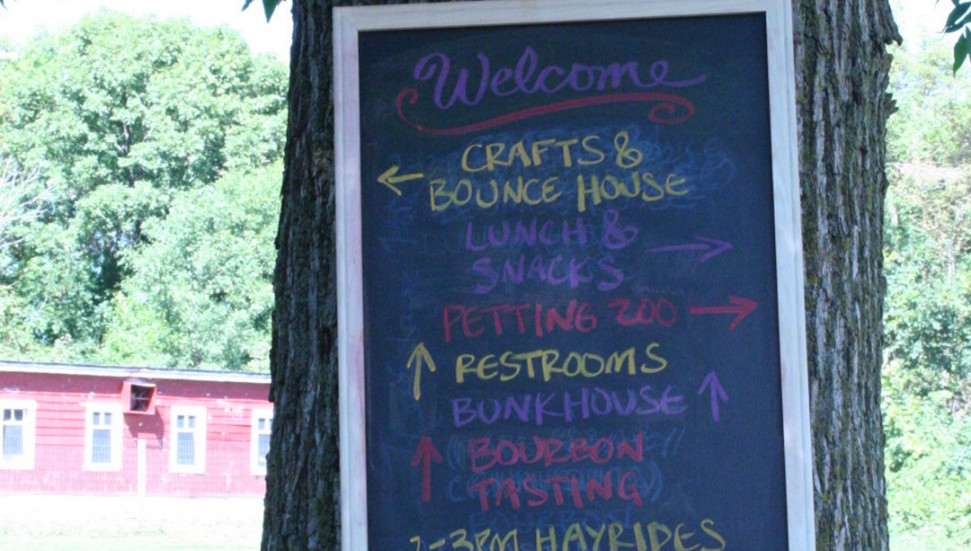 Welcome
CRAFTS &
← BOUNCE HOUSE
LUNCH & →
SNACKS
PETTING ZOO →
↑ RESTROOMS
BUNKHOUSE ↑
↑ BOURBON
TASTING
-3PM HAYRIDES